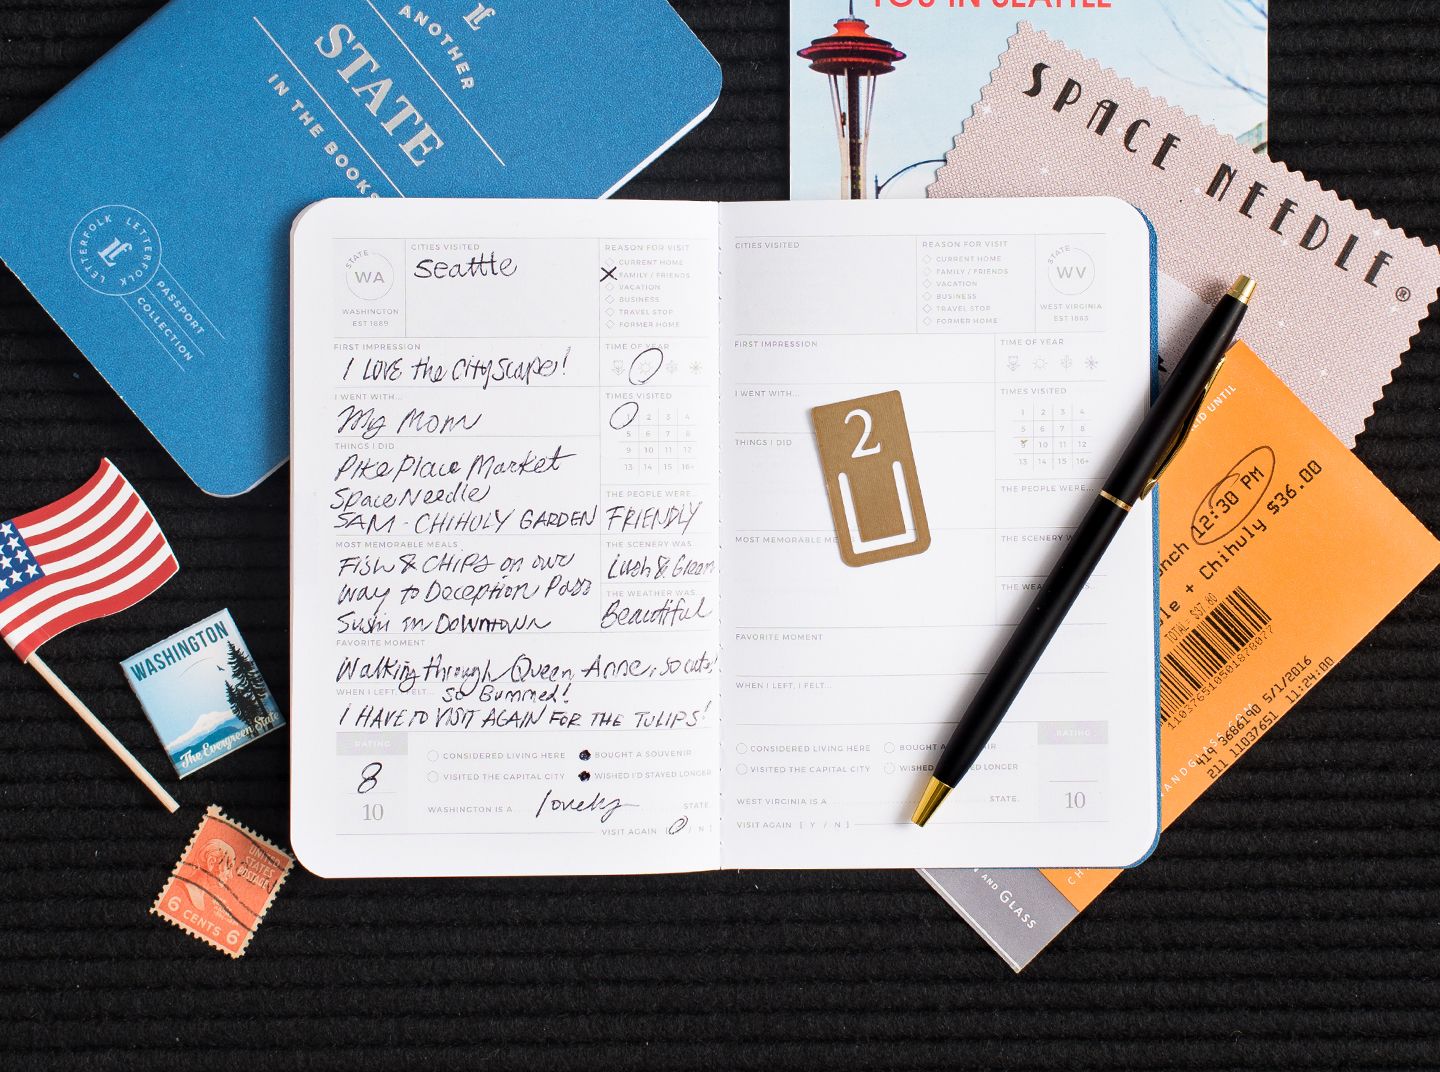 LF
ANOTHER
STATE
IN THE BOOKS
LETTERFOLK LETTERFOLK
LF
PASSPORT
COLLECTION
YOU IN SEATTLE
SPACE NEEDLE®
STATE
WA
WASHINGTON
EST 1889
CITIES VISITED
Seattle
REASON FOR VISIT
CURRENT HOME
X FAMILY / FRIENDS
VACATION
BUSINESS
TRAVEL STOP
FORMER HOME
FIRST IMPRESSION
I LOVE the cityscape!
TIME OF YEAR
I WENT WITH...
My Mom
TIMES VISITED
2 3 4
5 6 7 8
9 10 11 12
13 14 15 16+
THINGS I DID
Pike Place Market
Space Needle
SAM - CHIHULY GARDEN
THE PEOPLE WERE...
FRIENDLY
MOST MEMORABLE MEALS
FISH & CHIPS on our
way to Deception Pass
Sushi in DOWNTOWN
THE SCENERY WAS...
Lush & Green
THE WEATHER WAS...
Beautiful
FAVORITE MOMENT
Walking through Queen Anne, so cute!
WHEN I LEFT, I FELT...
So Bummed!
I HAVE TO VISIT AGAIN FOR THE TULIPS!
RATING
8
10
CONSIDERED LIVING HERE
BOUGHT A SOUVENIR
VISITED THE CAPITAL CITY
WISHED I'D STAYED LONGER
WASHINGTON IS A lovely STATE.
VISIT AGAIN [ / N ]
CITIES VISITED
REASON FOR VISIT
CURRENT HOME
FAMILY / FRIENDS
VACATION
BUSINESS
TRAVEL STOP
FORMER HOME
STATE
WV
WEST VIRGINIA
EST 1863
FIRST IMPRESSION
TIME OF YEAR
I WENT WITH...
TIMES VISITED
1 2 3 4
5 6 7 8
9 10 11 12
13 14 15 16+
THINGS I DID
2
THE PEOPLE WERE...
MOST MEMORABLE ME
THE SCENERY W
THE WEA
FAVORITE MOMENT
WHEN I LEFT, I FELT...
CONSIDERED LIVING HERE
BOUGHT A VENIR
VISITED THE CAPITAL CITY
WISHED LONGER
RATING
10
WEST VIRGINIA IS A STATE.
VISIT AGAIN [ Y / N ]
WASHINGTON
The Evergreen State
UNITED
STATES
POSTAGE
6 CENTS 6
LID UNTIL
nch 12:30 PM
le + Chihuly $36.00
TOTAL= $37.80
1103765105018780??
419 3686190 5/1/2016
211 11037651 11:24:00
ANDGLASS.COM
N AND GLASS
CH